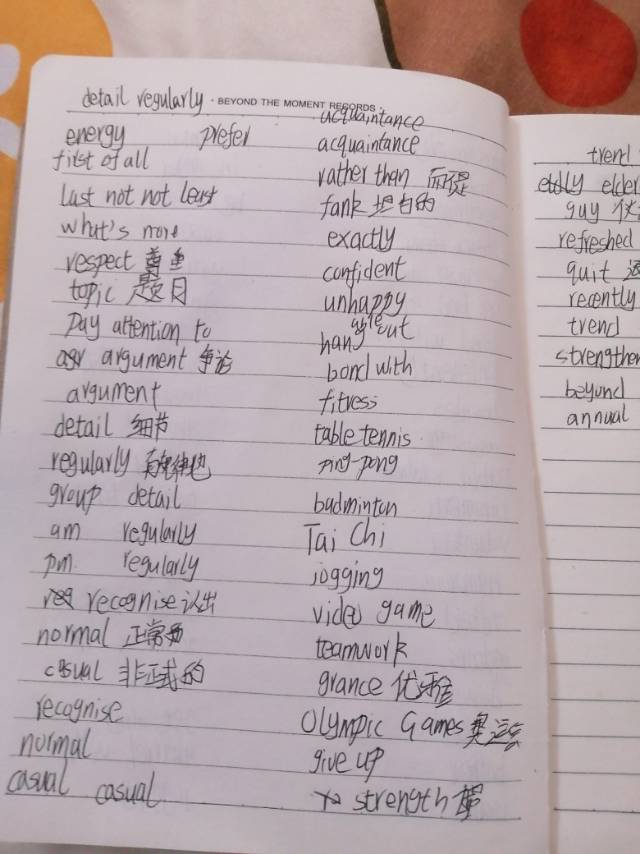 detail regularly · BEYOND THE MOMENT RECORDS ·
energy prefer
first of all
last not not least
what's more
respect
topic 题目
Pay attention to
argument 争论
argument
detail 细节
regularly 有规律地
group detail
am regularly
pm regularly
recognise 认出
normal 正常的
casual 非正式的
recognise
normal
casual casual
acquaintance
acquaintance
rather than 而不是
fank 坦白的
exactly
confident
unhappy
hang out
bond with
fitness
table tennis
ping-pong
badminton
Tai Chi
jogging
video game
teamwork
grance 优雅
Olympic Games 奥运会
give up
strength
trend
elder
guy
refreshed
quit
recently
trend
strengthen
beyond
annual